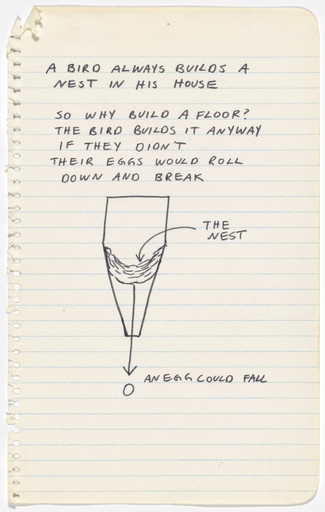 A BIRD ALWAYS BUILDS A
NEST IN HIS HOUSE
SO WHY BUILD A FLOOR?
THE BIRD BUILDS IT ANYWAY
IF THEY DIDN'T
THEIR EGGS WOULD ROLL
DOWN AND BREAK
THE
NEST
AN EGG COULD FALL